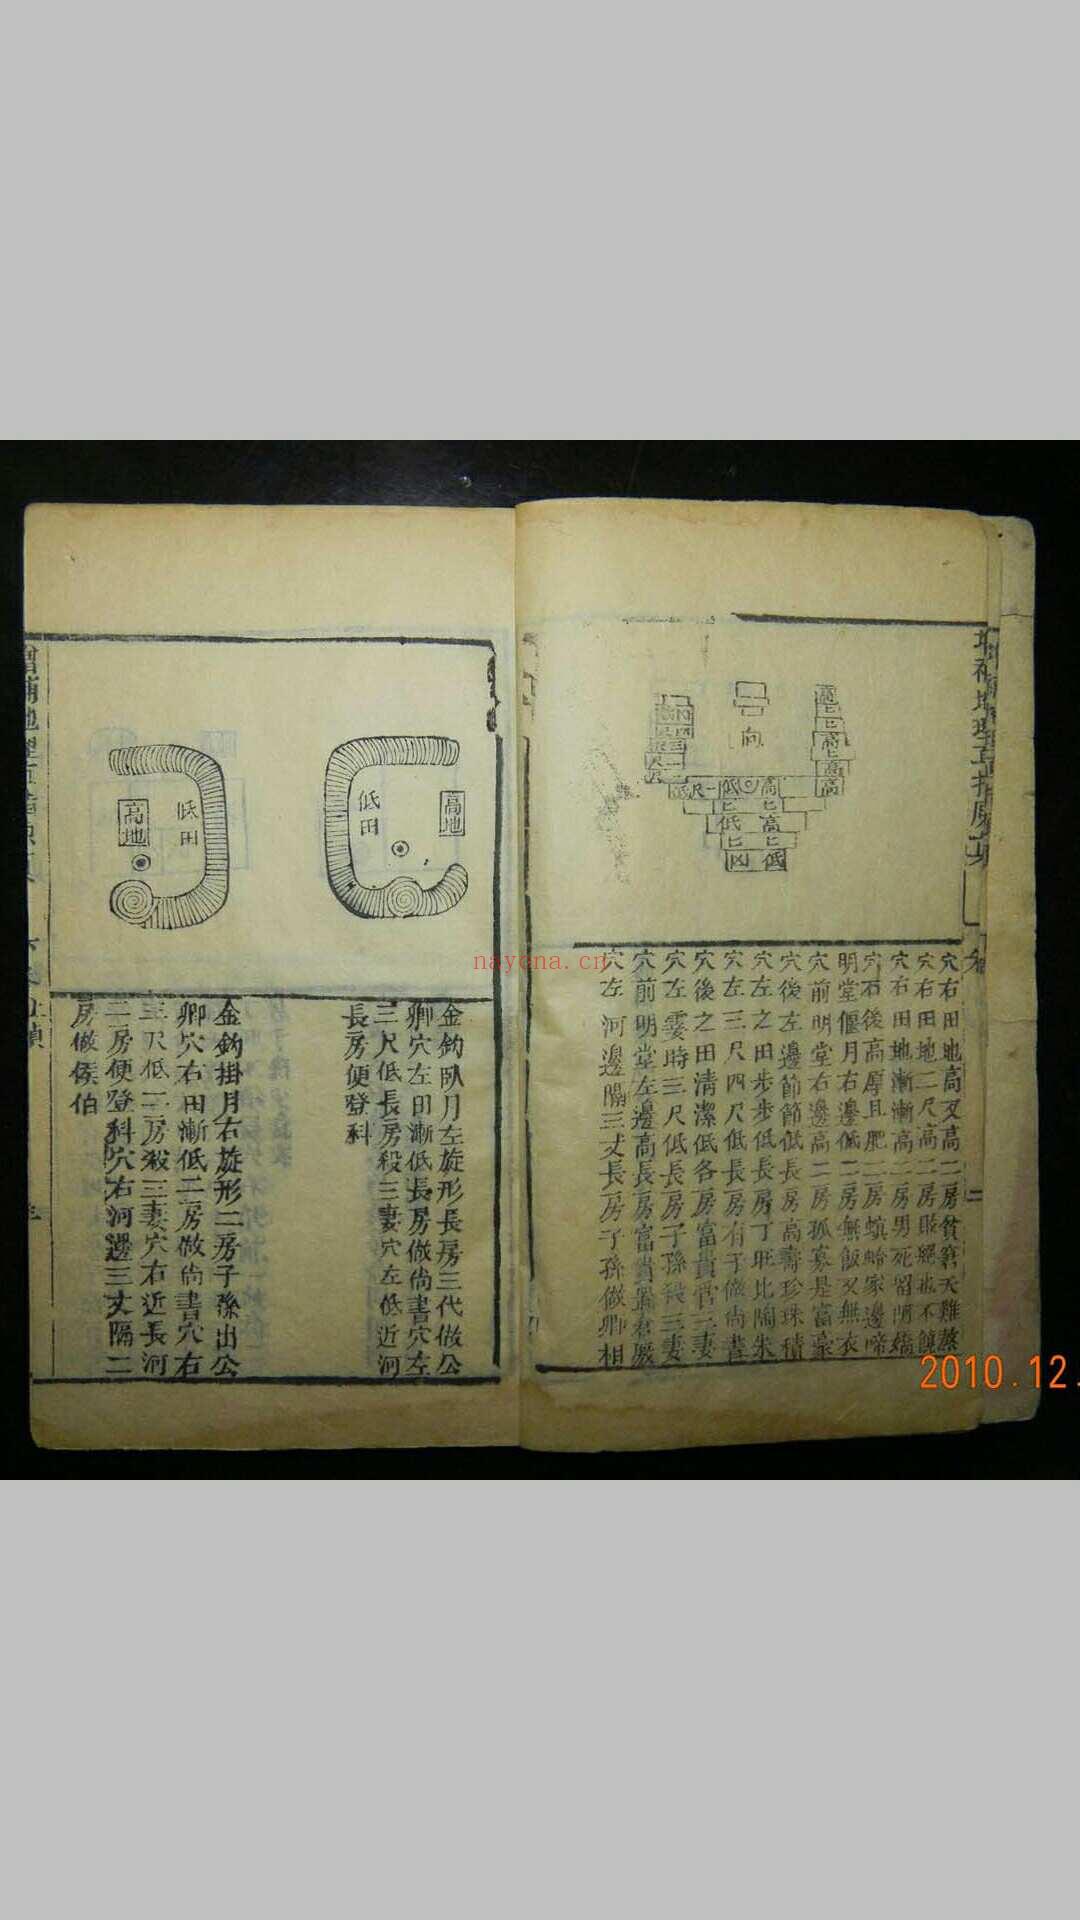 穴右田地高又高二房貧窘天難熬
穴右田地二尺高二房也不饒
穴右田地漸漸高二房男死留嬌
穴右後高厚且肥二房螟蛉家邊啼
明堂偃月右邊低二房無飯又無衣
穴前明堂右邊高二房孤寡是富豪
穴後左邊節節低長房高壽珍珠積
穴左之田步步低長房丁旺比陶朱
穴左三尺四尺低長房有子做尚書
穴後之田清潔低各房富貴官三妻
穴左霎時三尺低長房子孫殺三妻
穴前明堂左邊高長房富貴
穴左河邊隔三丈長房子孫做卿相
向
高地
低田
低田
高地
金鈎臥月左旋形長房三代做公
卿穴左田漸低長房做尚書穴左
三尺低長房殺三妻穴左低近河
長房便登科
金鈎掛月右旋形二房子孫出公
卿穴右田漸低二房做尚書穴右
三尺低二房殺三妻穴右近長河
二房便登科穴右河邊三丈隔二
房做侯伯
nayona.cn
2010.12.